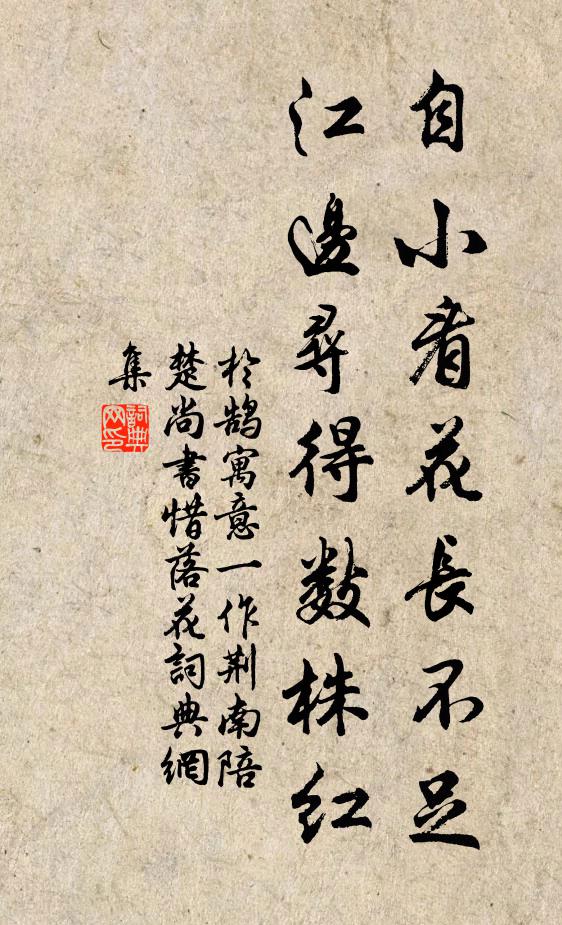 自小看花長不足
江邊尋得數株紅
於鵠寓意一作荆南陪
楚尚書惜落花詞典網
集
詞典
网印